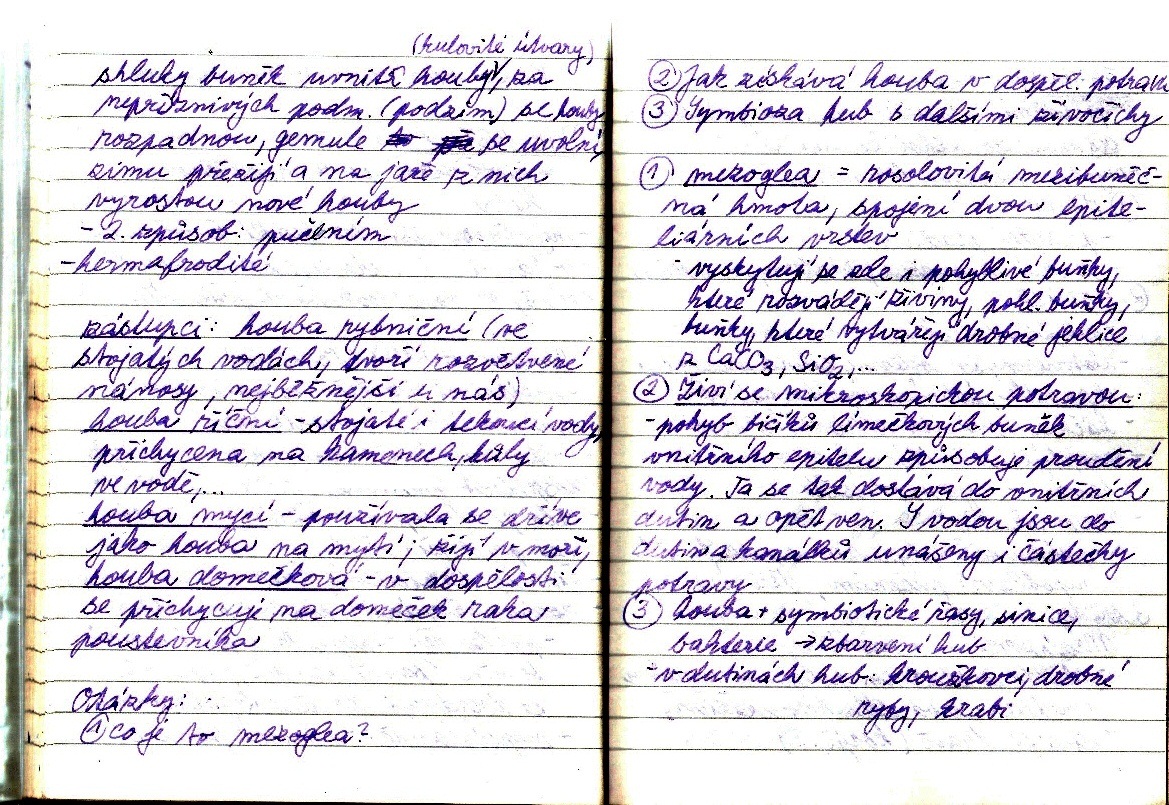 (kulovité útvary)
shluky buněk uvnitř houby, za
nepříznivých podm. (podzim) se houby
rozpadnou, gemule se uvolní,
zimu přežijí a na jaře z nich
vyrostou nové houby
- 2. způsob: pučením
- hermafrodité
zástupci: houba rybniční (ve
stojatých vodách, tvoří rozvětvené
nánosy, nejběžnější u nás)
houba říční - stojaté i tekoucí vody,
přichycena na kamenech, kůly
ve vodě,...
houba mycí - používala se dříve
jako houba na mytí; žijí v moři,
houba domečková - v dospělosti
se přichycuje na domeček raka
poustevníka
Otázky:
① Co je to mezoglea?
② Jak získává houba v dospěl. potravu
③ Symbioza hub s dalšími živočichy
① mezoglea = rosolovitá mezibuněč-
ná hmota, spojení dvou epite-
liárních vrstev
- vyskytují se zde i pohyblivé buňky,
které rozvádějí živiny, pohl. buňky,
buňky, které vytvářejí drobné jehlice
z CaCO₃, SiO₂,...
② Živí se mikroskopickou potravou:
- pohyb bičíků límečkových buněk
vnitřního epitelu způsobuje proudění
vody. Ta se tak dostává do vnitřních
dutin a opět ven. S vodou jsou do
dutin a kanálků unášeny i částečky
potravy
③ houba + symbiotické řasy, sinice,
bakterie → zbarvení hub
- v dutinách hub: kroužkovci, drobné
ryby, krabi